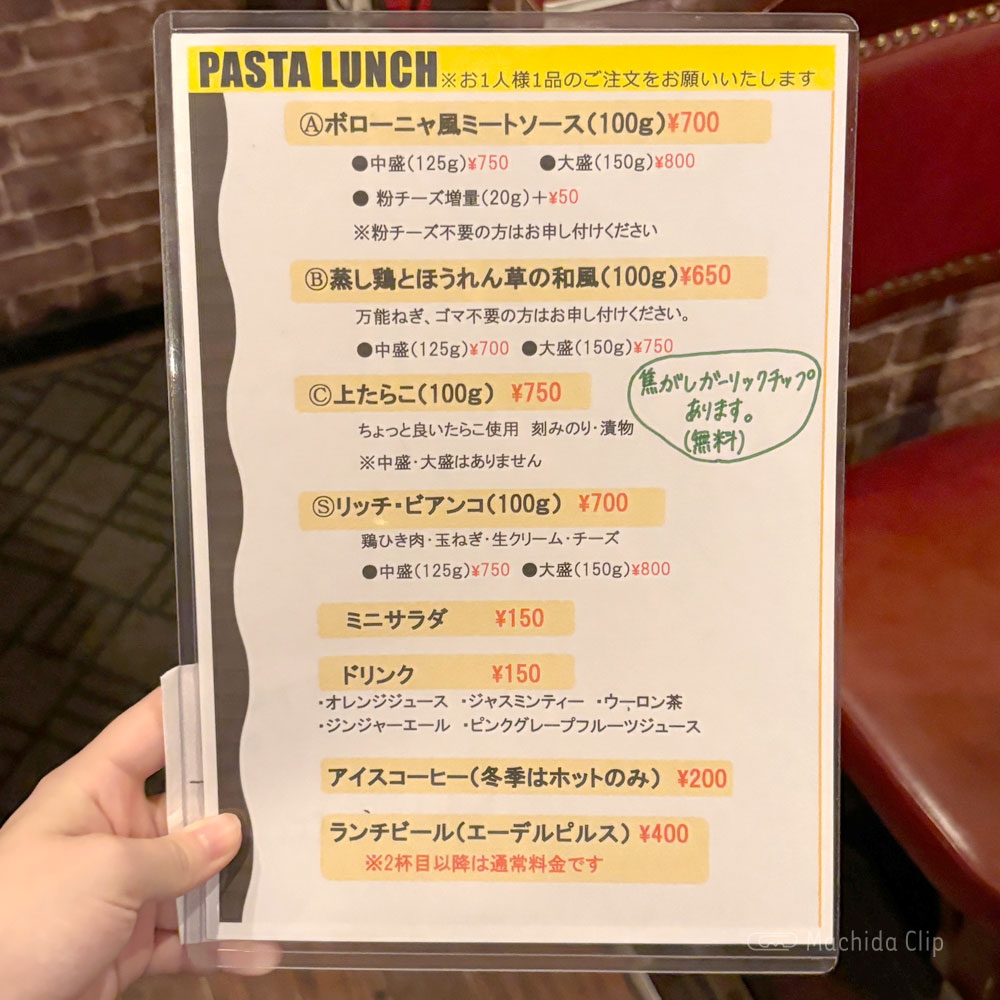 PASTA LUNCH ※お1人様1品のご注文をお願いいたします
Ⓐボローニャ風ミートソース(100g)¥700
●中盛(125g)¥750 ●大盛(150g)¥800
● 粉チーズ増量(20g)＋¥50
※粉チーズ不要の方はお申し付けください
Ⓑ蒸し鶏とほうれん草の和風(100g)¥650
万能ねぎ、ゴマ不要の方はお申し付けください。
●中盛(125g)¥700 ●大盛(150g)¥750
Ⓒ上たらこ(100g) ¥750
ちょっと良いたらこ使用 刻みのり・漬物
※中盛・大盛はありません
焦がしガーリックチップ
あります。
(無料)
Ⓢリッチ・ビアンコ(100g) ¥700
鶏ひき肉・玉ねぎ・生クリーム・チーズ
●中盛(125g)¥750 ●大盛(150g)¥800
ミニサラダ ¥150
ドリンク ¥150
・オレンジジュース ・ジャスミンティー ・ウーロン茶
・ジンジャーエール ・ピンクグレープフルーツジュース
アイスコーヒー(冬季はホットのみ) ¥200
ランチビール(エーデルピルス) ¥400
※2杯目以降は通常料金です
Machida Clip